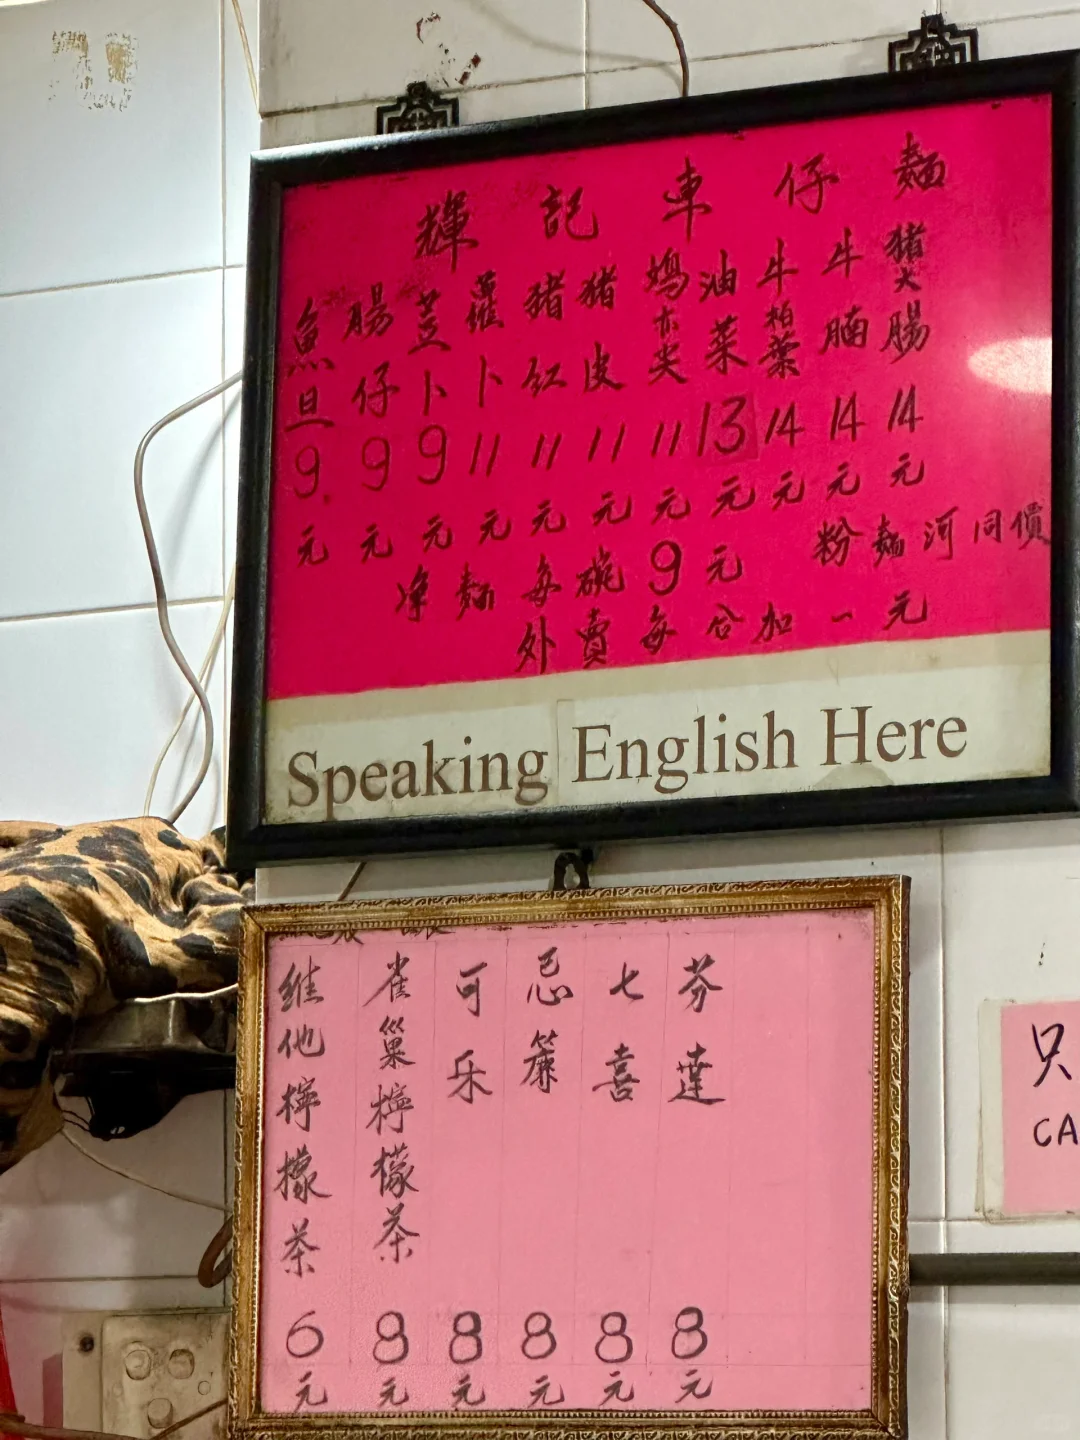 輝記車仔麵
魚旦9元
腸仔9元
荳卜9元
蘿卜11元
猪红11元
猪皮11元
11元
油菜13元
牛柏葉14元
牛腩14元
猪大腸14元
净麵每碗9元 粉麵河同價
外賣每合加一元
Speaking English Here
维他檸檬茶6元
雀巢檸檬茶8元
可乐8元
忌簾8元
七喜8元
芬達8元
只
CA